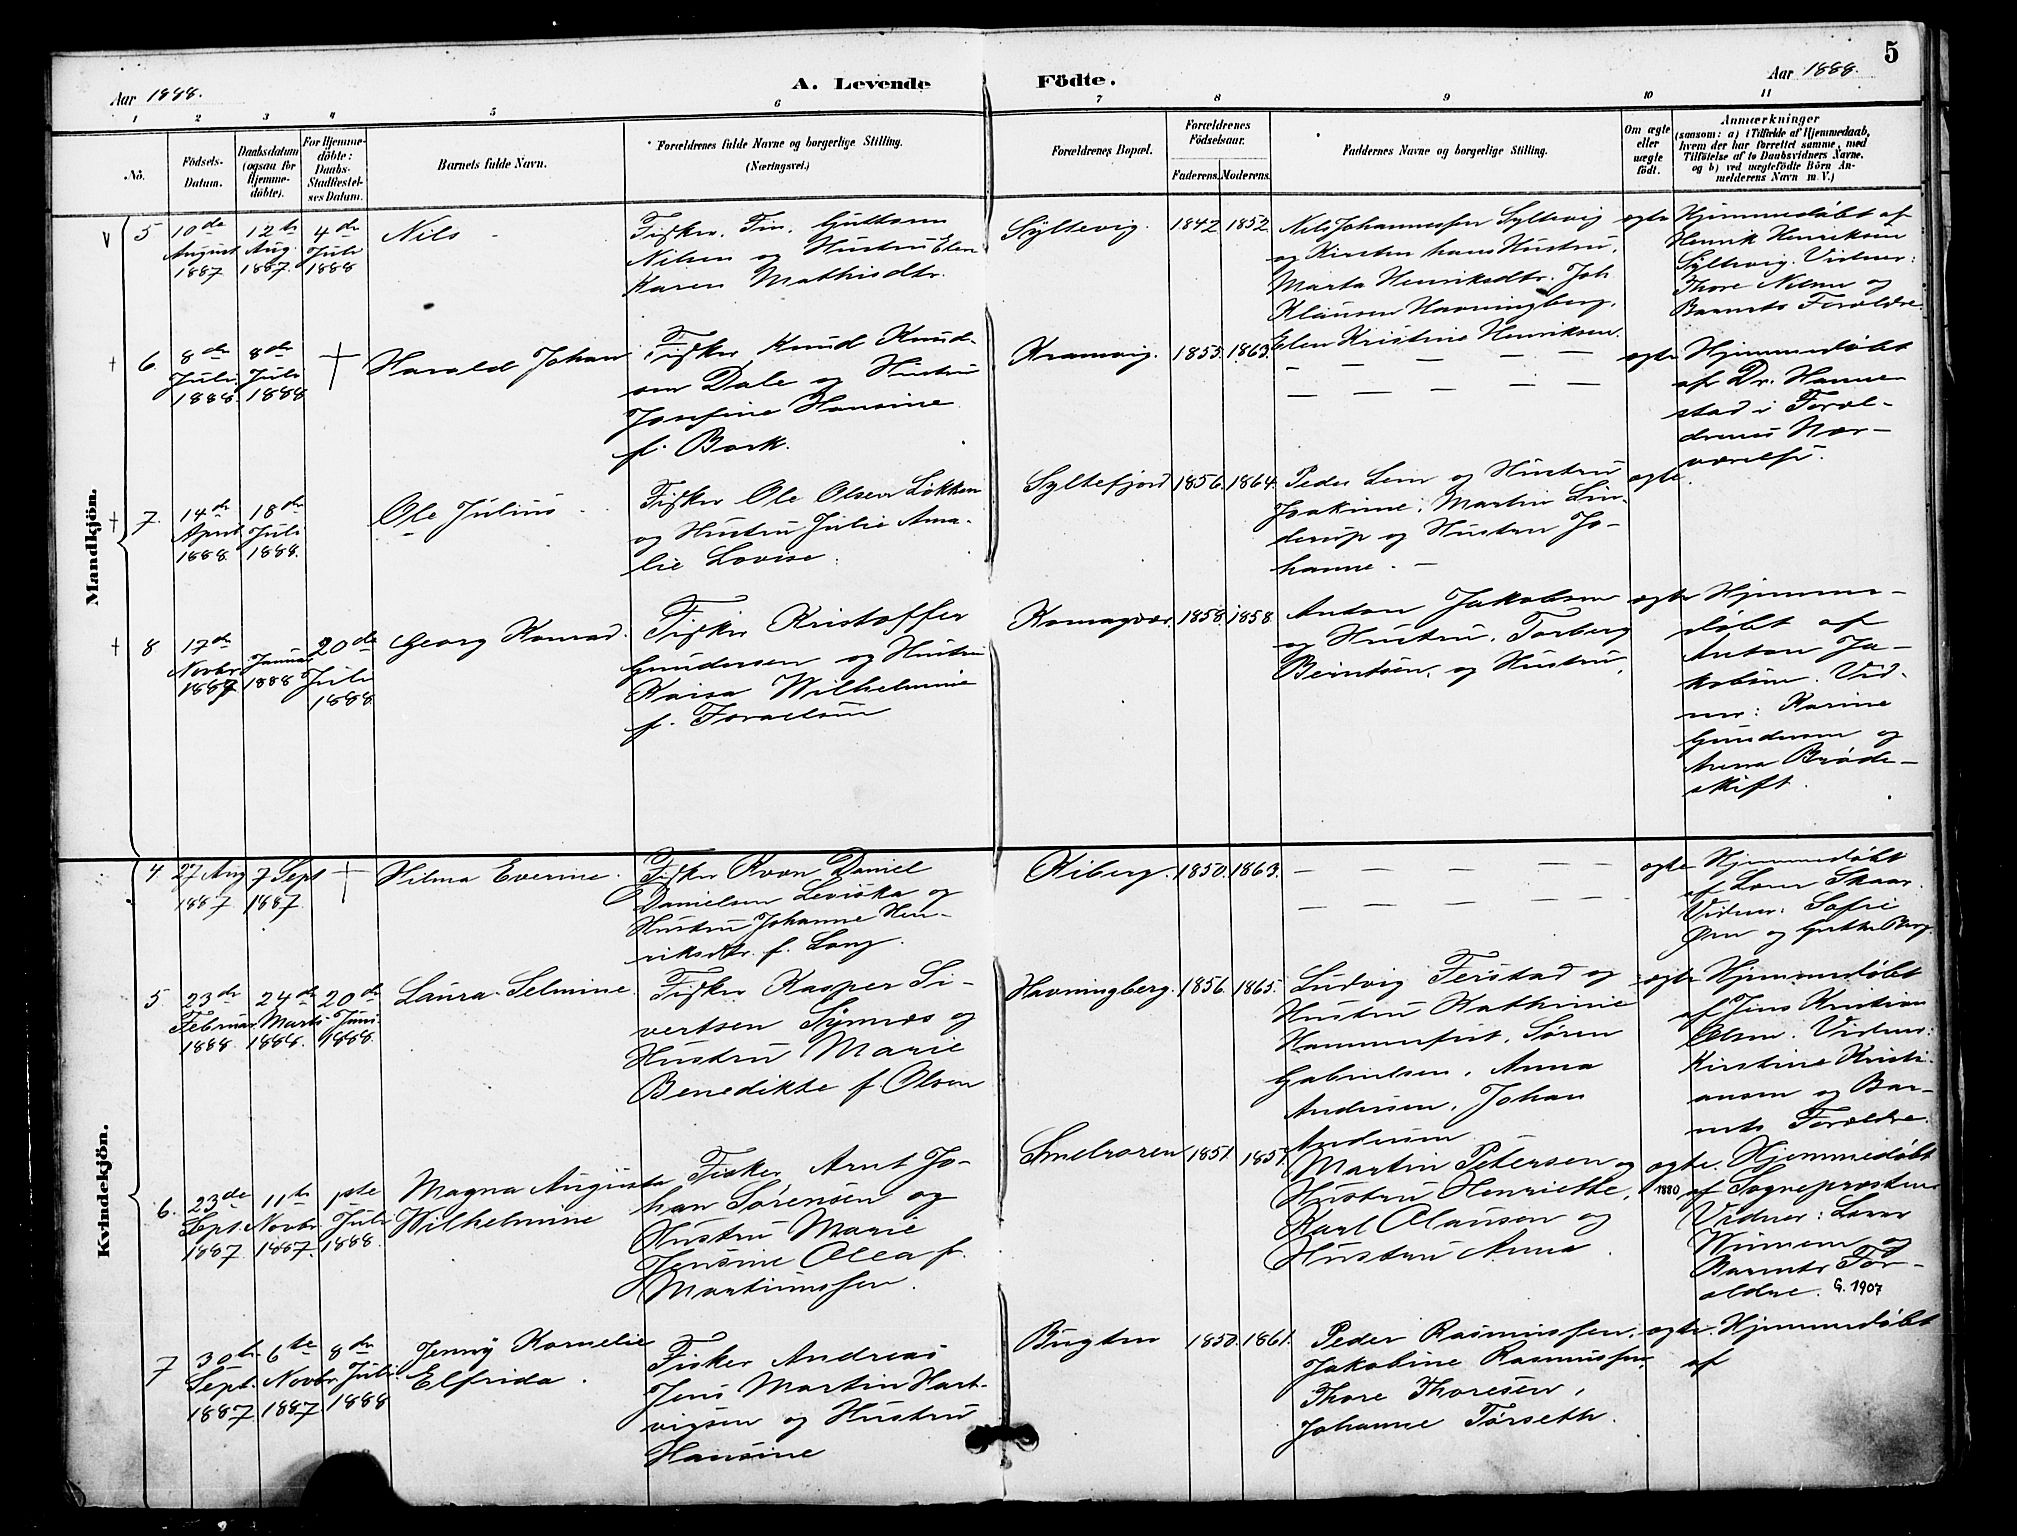 5
Aar 1888.
A. Levende Födte.
Aar 1888.
1 2 3 4 5 6 7 8 9 10 11
No.
Födsels-
Datum.
Daabsdatum
(ogsaa for
Hjemme-
döbte).
For Hjemme-
döbte:
Daabs-
Stadfæstel-
ses Datum.
Barnets fulde Navn.
Forældrenes fulde Navne og borgerlige Stilling.
(Næringsvei.)
Forældrenes Bopæl.
Forældrenes
Födselsaar.
Faderens. Moderens.
Faddernes Navne og borgerlige Stilling.
Om ægte
eller
uægte
födt.
Anmærkninger
(saasom: a) i Tilfælde af Hjemmedaab,
hvem der har forrettet samme, med
Tilföielse af to Daabsvidners Navne,
og b) ved uægtefödte Börn An-
melderens Navn m. V.)
Mandkjön.
5
10de
August
1887
12te
Aug.
1887.
4de
Juli
1888
Nils
Fisker, Fin, Guttorm
Nilsen og Hustru Elen
Karen Mathisdtr.
Syltevig.
1842
1852
Nils Johannessen Syltevig
og Kirsten hans Hustru,
Marta Henriksdtr. Joh.
Klausen Havningberg,
Elen Kristine Henriksen.
ægte
Hjemmedøbt af
Henrik Henriksen
Syltevig. Vidner:
Thore Nilsen og
Barnets Forældre.
† 6.
8de
Juli
1888.
8de
Juli
1888
†
Harald Johan
Fisker Knud Knud-
sen Dale og Hustru
Josefine Hansine
f. Bork.
Kramvig.
1855.
1863.
— — — — —
— — — — —
ægte
Hjemmedøbt
af Dr. Hanne-
stad i Foræl-
drenes Nær-
værelse.
† 7.
14de
April
1888.
18de
Juli
1888.
Ole Julius
Fisker Ole Olsen Løkken
og Hustru Julie Ama-
lie Lovise.
Syltefjord
1856.
1864.
Peder Lem og Hustru
Joakime; Martin Lin-
derup og Hustru Jo-
hanne. —
ægte.
† 8
17de
Novbr
1887
Januar
1888
20de
Juli
1888
Georg Konrad.
Fisker Kristoffer
Gundersen og Hustru
Kaisa Wilhelmine
f.
Komagvær.
1858.
1858.
Anton Jakobsen
og Hustru, Torberg
Berntsen, og Hustru.
ægte
Hjemme-
døbt af
Anton Ja-
kobsen. Vid-
ner: Karine
Gundersen og
Anna Brøde-
skift.
Kvindekjön.
4.
27 Aug
1887.
7 Sept
1887.
†
Hilma Everine.
Fisker Kvæn Daniel
Danielsen Leviska og
Hustru Johanne Hen-
riksdtr. f. Lang.
Kiberg.
1850.
1863.
— — — — —
— — — — —
ægte
Hjemmedøbt
af Lorn Skaar.
Vidner: Sofie
Øen og
5
23de
Februar
1888.
24de
Marts
1888.
20de
Juni
1888.
Laura Selmine.
Fisker Kasper Si-
vertsen Synnes og
Hustru Marie
Benedikte f. Olsen
Havningberg.
1856.
1865.
Ludvig Ferstad og
Hustru Kathrine
Hammerfest, Søren
Gabrielsen, Anna
Andersen, Johan
Andersen
ægte
Hjemmedøbt
af Jens Kristian
Olsen. Vidner:
Kirstine Kristi-
ansen og Bar-
nets Forældre.
6.
23de
Sept.
1887.
11te
Novbr
1887.
1ste
Juli
1888.
Magna Augusta
Wilhelmine
Fisker Arnt Jo-
han Sørensen og
Hustru Marie
Jensine Olea f.
Martinussen.
Smelroren
1851.
1857.
Martin Petersen og
Hustru Henriette,
Karl Olausen og
Hustru Anna.
ægte.
1880
Hjemmedøbt
af Sognepræsten
Vidner: Lorn
og
Barnets For-
ældre. G. 1907
7
30te
Sept.
1887
6te
Novbr
1887
8de
Juli
1888
Jenny Kornelie
Elfrida.
Fisker Andreas
Jens Martin Hart-
vigsen og Hustru
Hansine
Bugten
1850.
1861.
Peder Rasmussen,
Jakobine Rasmussen,
Thore Thoresen,
Johanne Tørseth.
ægte.
Hjemmedøbt
af